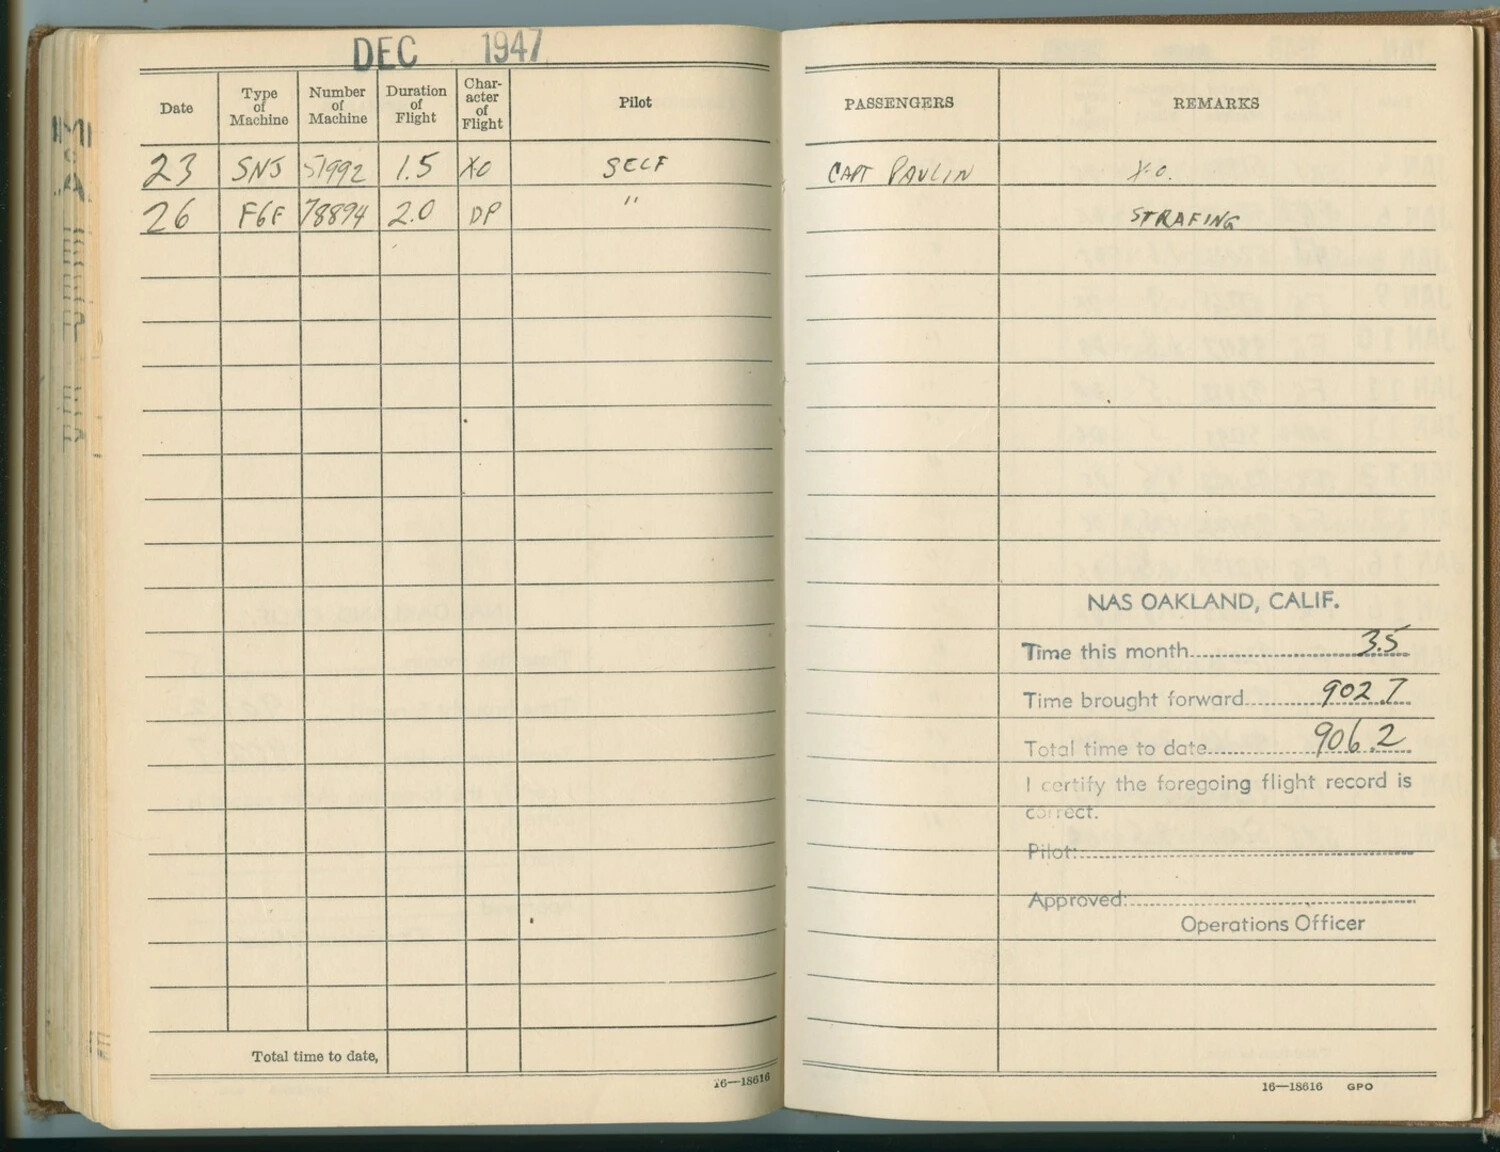 DEC 1947
Date
Type of Machine
Number of Machine
Duration of Flight
Character of Flight
Pilot
PASSENGERS
REMARKS
23 SNJ 51992 1.5 XO SELF CAPT PAVLIN X.O.
26 F6F 78894 2.0 DP " STRAFING
NAS OAKLAND, CALIF.
Time this month 3.5
Time brought forward 902.7
Total time to date 906.2
I certify the foregoing flight record is
correct.
Pilot:
Approved:
Operations Officer
Total time to date,
16—18616
16—18616 GPO